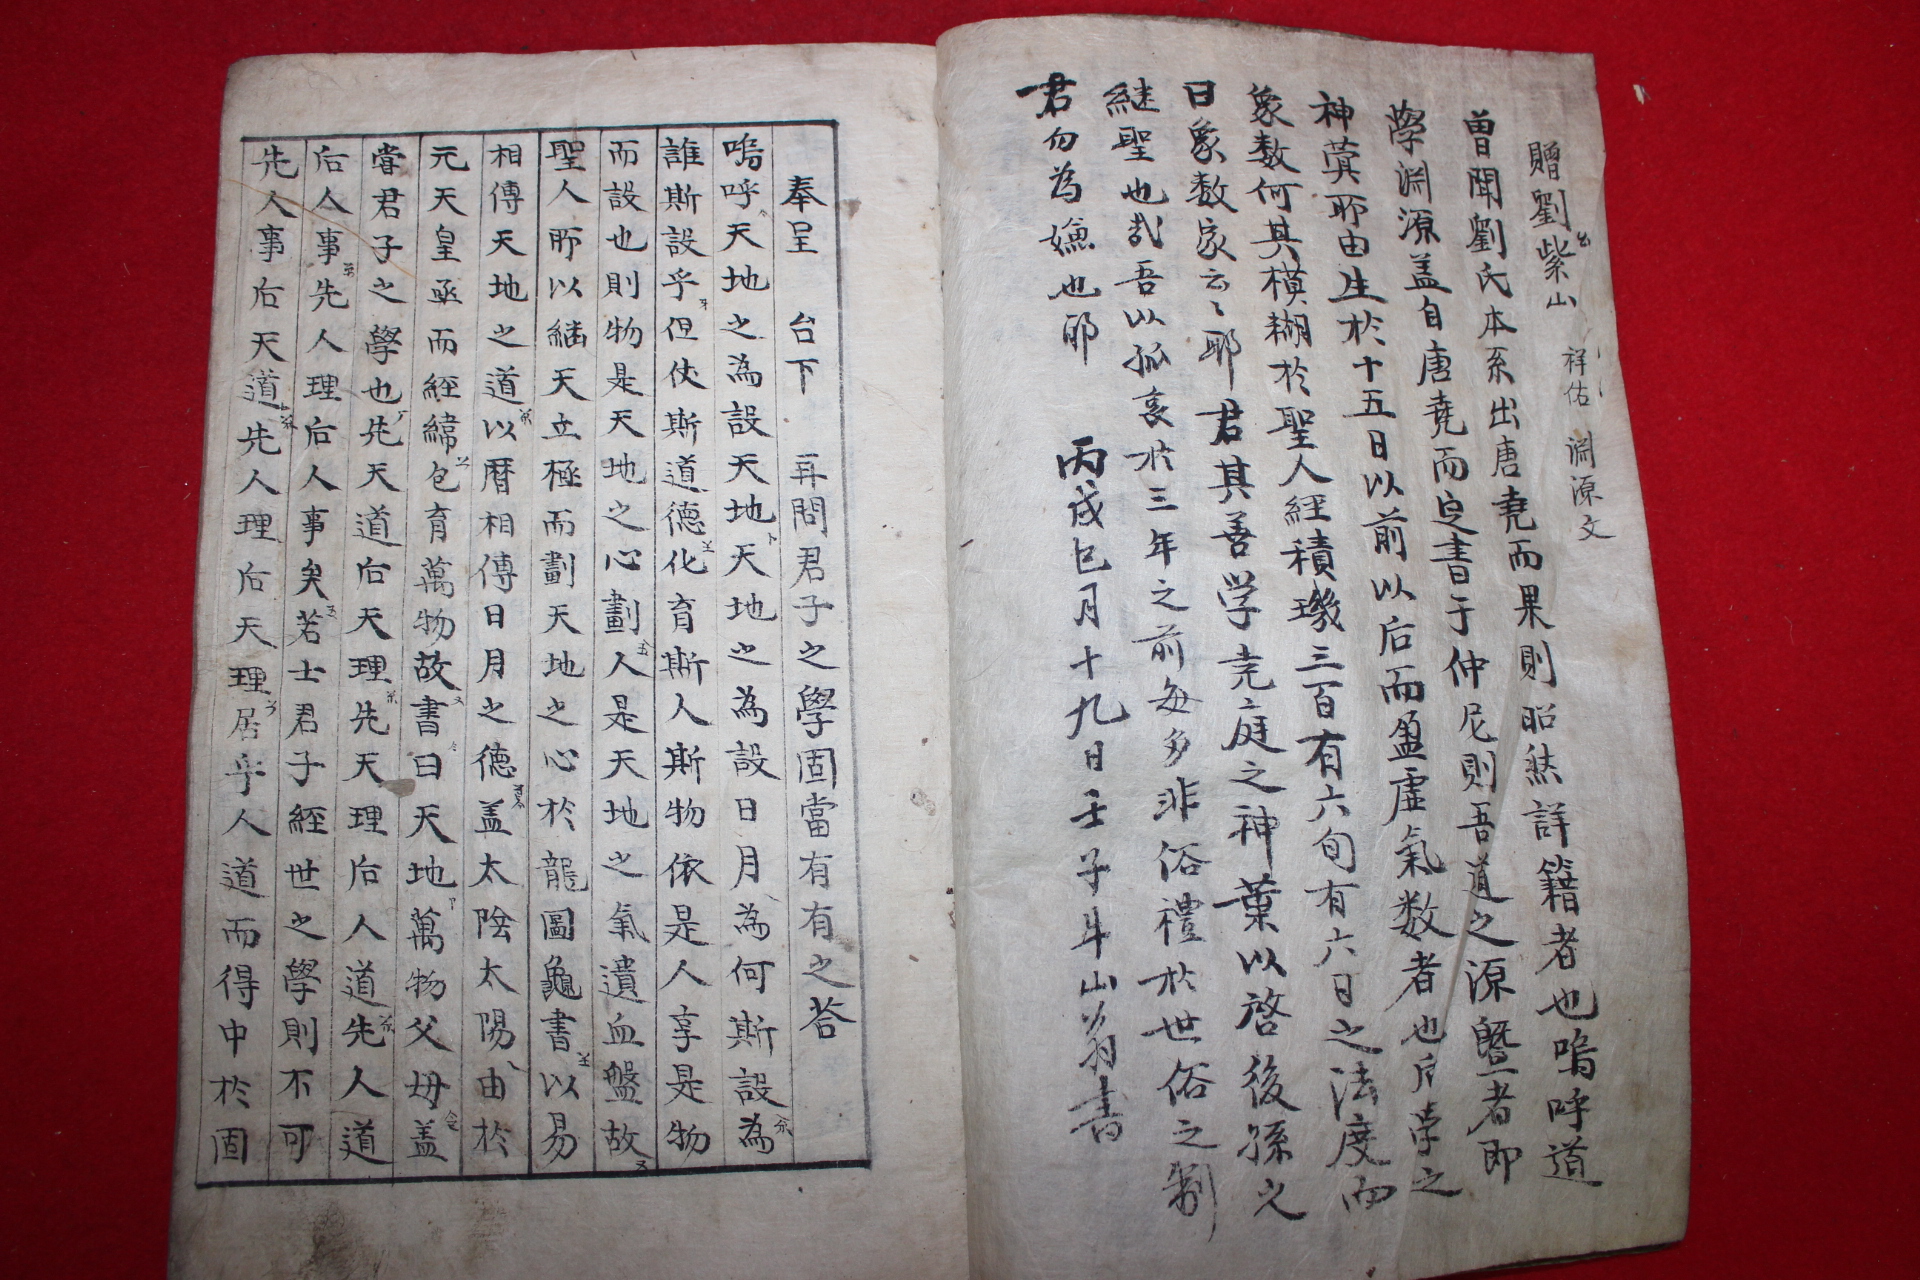 贈劉紫山 祥佑 淵源文
曾聞劉氏本系出唐堯而果則昭然詳籍者也嗚呼道
學淵源盖自唐堯而㝎書于仲尼則吾道之源曁者即
神蓂耶由生於十五日以前以后而盈虛氣数者也
象数何其模糊於聖人經積璣三百有六旬有六日之法度而
曰象数家云〻耶 君其善学堯庭之神葉以啓後孫之
継聖也哉吾以孤哀於三年之前每多非俗禮於世俗之制
君勿為嫌也耶 丙戌巳月十九日壬子斗山翁書
奉呈 台下 再問君子之學固當有有之荅
嗚呼天地之為設天地天地之為設日月為何斯設為
誰斯設乎但使斯道德化育斯人斯物依是人享是物
而設也則物是天地之心劃人是天地之氣遺血盤故
聖人所以継天立極而劃天地之心於龍圖龜書以易
相傳天地之道以曆相傳日月之德盖太陰太陽由於
元天皇亟而經緯包育萬物故書曰天地萬物父母盖
甞君子之學也先天道后天理先天理后人道先人道
后人事先人理后人事矣若士君子經世之學則不可
先人事后天道先人理后天理居乎人道而得中於固